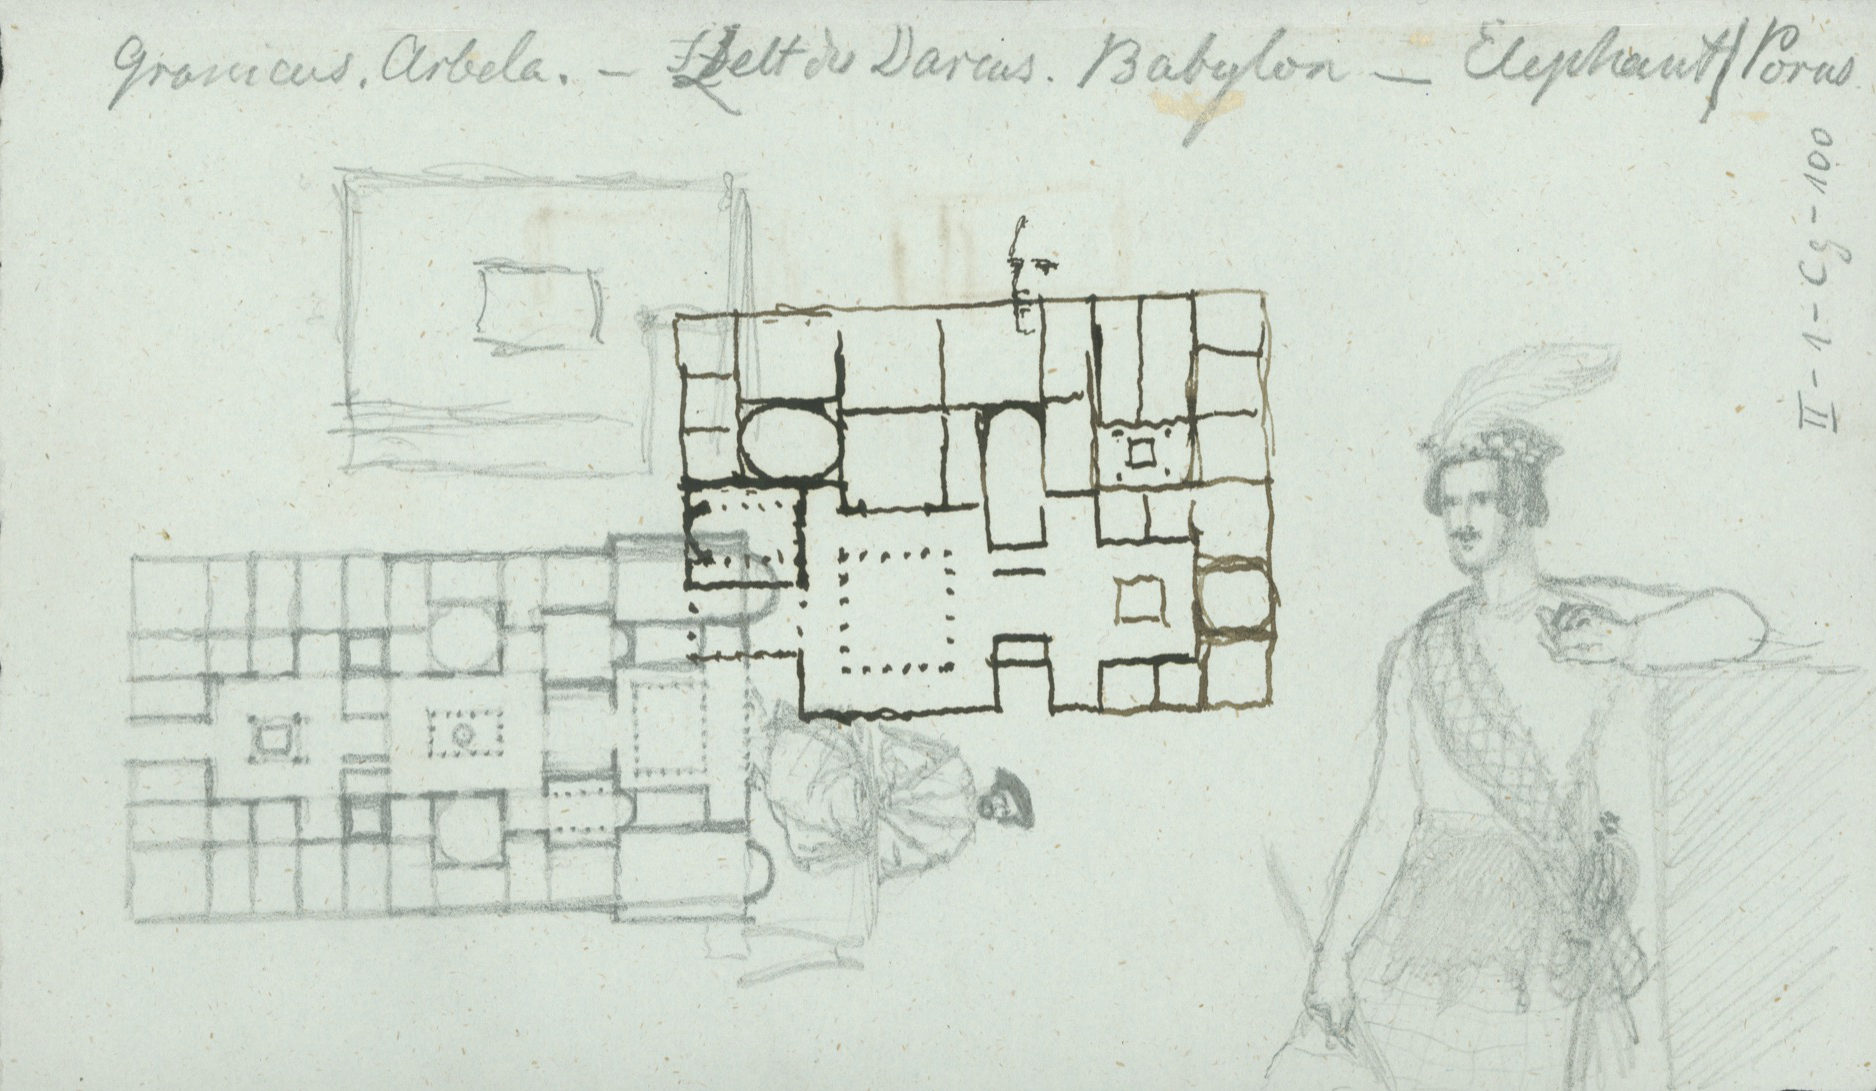 Granicus. Arbela. – Zelt des Darius. Babylon – Elephant / Porus
II - 1 - Cg - 100